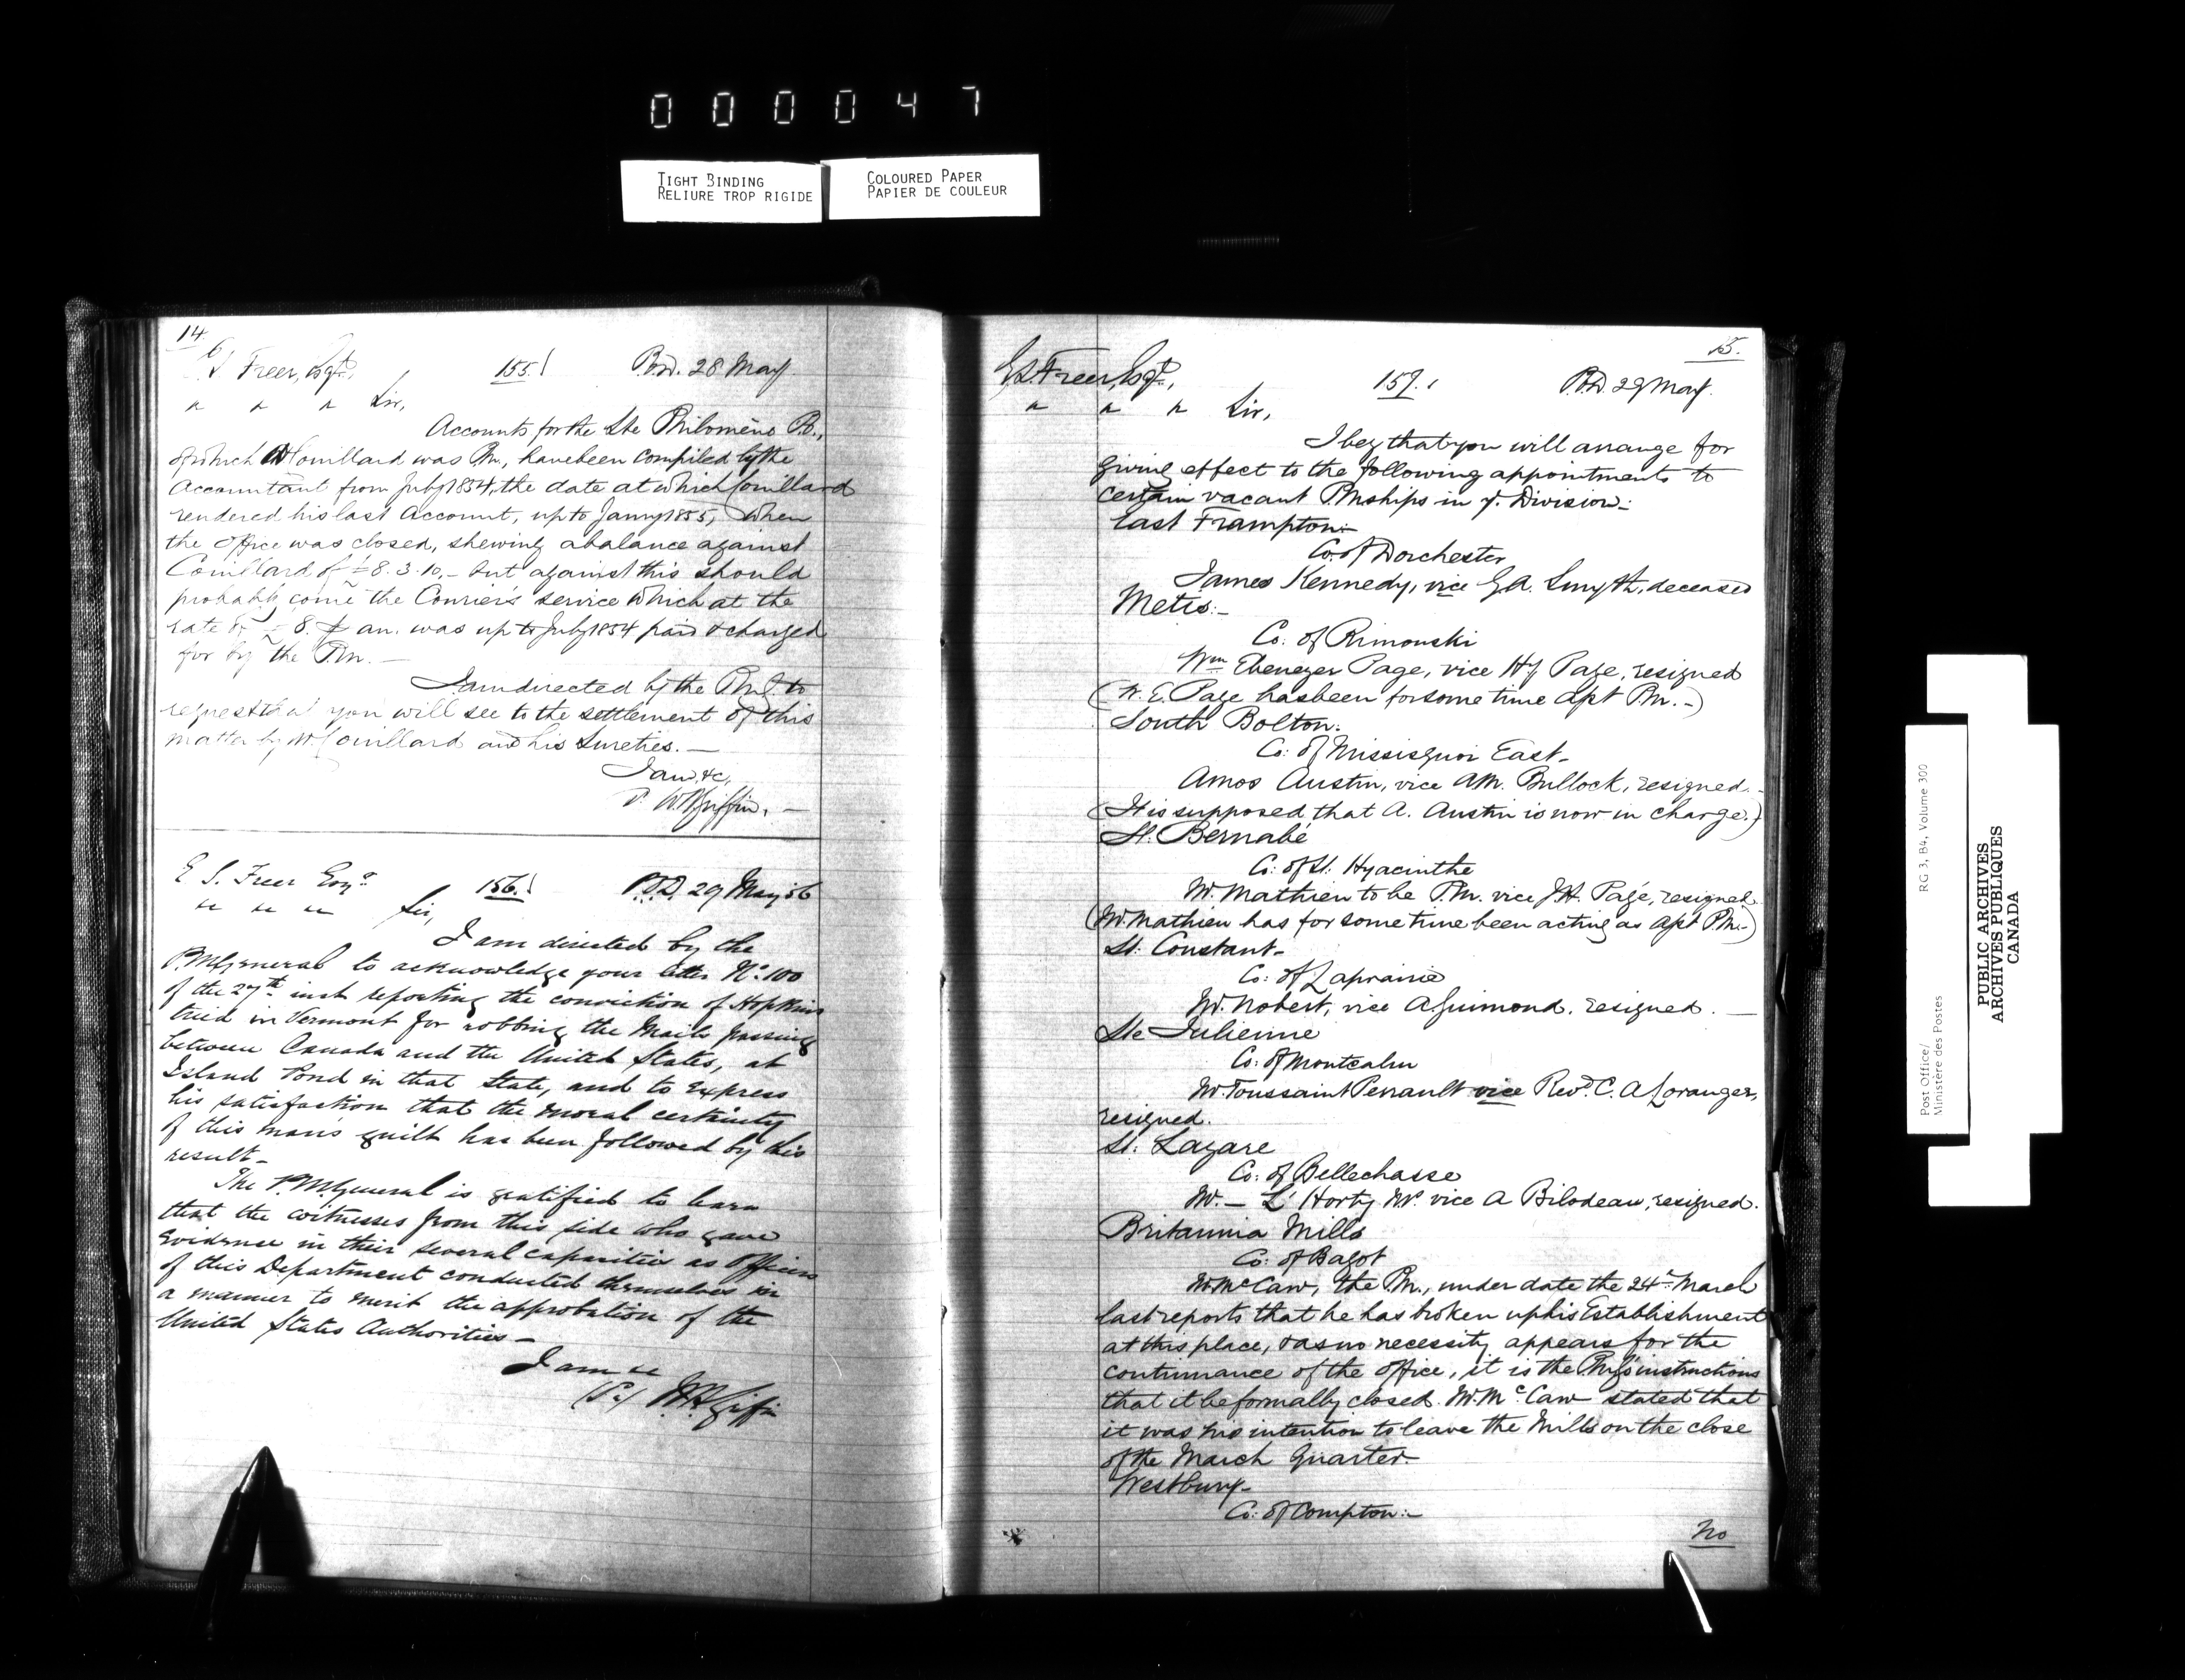 000047
TIGHT BINDING
RELIURE TROP RIGIDE
COLOURED PAPER
PAPIER DE COULEUR
14.
E S Freer, Esqre, 155. P.O.D. 28 May
" " " Sir,
Accounts for the Ste Philomène P.O.,
of which Mr Couillard was Pm., have been compiled by the
Accountant from July 1854, the date at which Couillard
rendered his last Account, up to Jany 1855, when
the Office was closed, shewing a balance against
Couillard of £8.3.10,- but against this should
probably come the Courier's service which at the
rate of £8. p an. was up to July 1854 paid & charged
for by the P.m.—
I am directed by the PmG. to
request that you will see to the settlement of this
matter by Mr. Couillard and his Sureties.—
I am, &c,
W.H. Griffin.—
E. S. Freer Esqre 156. P.O.D. 29 May 56
" " " Sir,
I am directed by the
P.M.General to acknowledge your letter No. 100
of the 27th inst reporting the conviction of Hopkins
tried in Vermont for robbing the Mails passing
between Canada and the United States, at
Island Pond in that State, and to express
his satisfaction that the moral certainty
of this man's guilt has been followed by this
result-
The P.M.General is gratified to learn
that the witnesses from this side who gave
evidence in their several capacities as Officers
of this Department conducted themselves in
a manner to merit the approbation of the
United States Authorities—
I am &c
W.H. Griffin
15.
E.S. Freer, Esqre, 157. P.O.D. 29 May.
" " " Sir,
I beg that you will arrange for
giving effect to the following appointments to
certain vacant Pmships in yr. Division:-
East Frampton:-
Co: of Dorchester
James Kennedy, vice G.A. Smyth, deceased
Metis:-
Co: of Rimouski
Wm Ebenezer Page, vice Hy Page, resigned
(W. E. Page has been for some time Asst P.m.-)
South Bolton.
Co: of Missisquoi East-
Amos Austin, vice A.M. Bullock, resigned.-
(It is supposed that A. Austin is now in charge.)
St. Bernabé
Co: of St. Hyacinthe
Mr. Mathieu to be P.m. vice J.H. Pagé, resigned
(Mr. Mathieu has for some time been acting as Asst P.m.-)
St: Constant-
Co: of Laprairie
Mr. Robert, vice A Guimond, resigned. —
Ste Julienne
Co: of Montcalm
Mr. Toussaint Perrault vice Revd. C. A Loranger,
resigned.
St: Lazare
Co: of Bellechasse
Mr. — L' Horty vice A Bilodeau, resigned.
Britannia Mills
Co: of Bagot
Mr. McCaw, the P.m., under date the 24th March
last reports that he has broken up his Establishment
at this place, & as no necessity appears for the
continuance of the office, it is the PmG's instructions
that it be formally closed. Mr. McCaw stated that
it was his intention to leave the Mills on the close
of the March Quarter.
Westbury-
Co: of Compton:-
No
Post Office/
Ministère des Postes
RG 3, B4, Volume 300
PUBLIC ARCHIVES
ARCHIVES PUBLIQUES
CANADA